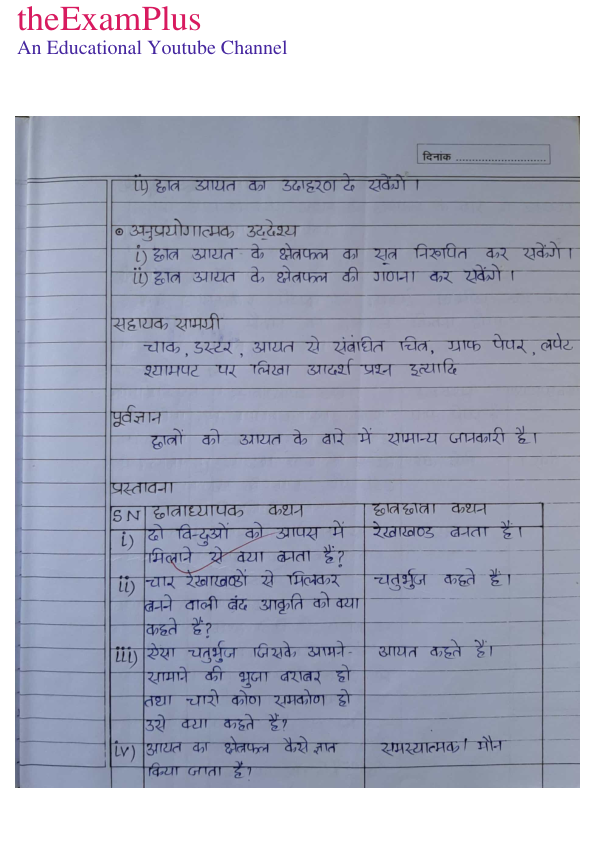 theExamPlus
An Educational Youtube Channel
दिनांक ..............................
ii) छात्र आयत का उदाहरण दे सकेंगे।
अनुप्रयोगात्मक उद्देश्य
i) छात्र आयत के क्षेत्रफल का सूत्र निरूपित कर सकेंगे।
ii) छात्र आयत के क्षेत्रफल की गणना कर सकेंगे।
सहायक सामग्री
चाक, डस्टर, आयत से संबंधित चित्र, ग्राफ पेपर, लपेट
श्यामपट पर लिखा आदर्श प्रश्न इत्यादि
पूर्वज्ञान
छात्रों को आयत के बारे में सामान्य जानकारी है।
प्रस्तावना
SN छात्राध्यापक कथन छात्रछात्रा कथन
i) दो विन्दुओं को आपस में रेखाखण्ड बनता है।
मिलाने से क्या बनता है?
ii) चार रेखाखण्डों से मिलकर चतुर्भुज कहते हैं।
बनने वाली बंद आकृति को क्या
कहते हैं?
iii) ऐसा चतुर्भुज जिसके आमने- आयत कहते हैं।
सामाने की भुजा बराबर हो
तथा चारो कोण समकोण हो
उसे क्या कहते हैं?
iv) आयत का क्षेत्रफल कैसे ज्ञात समस्यात्मक / मौन
किया जाता है?